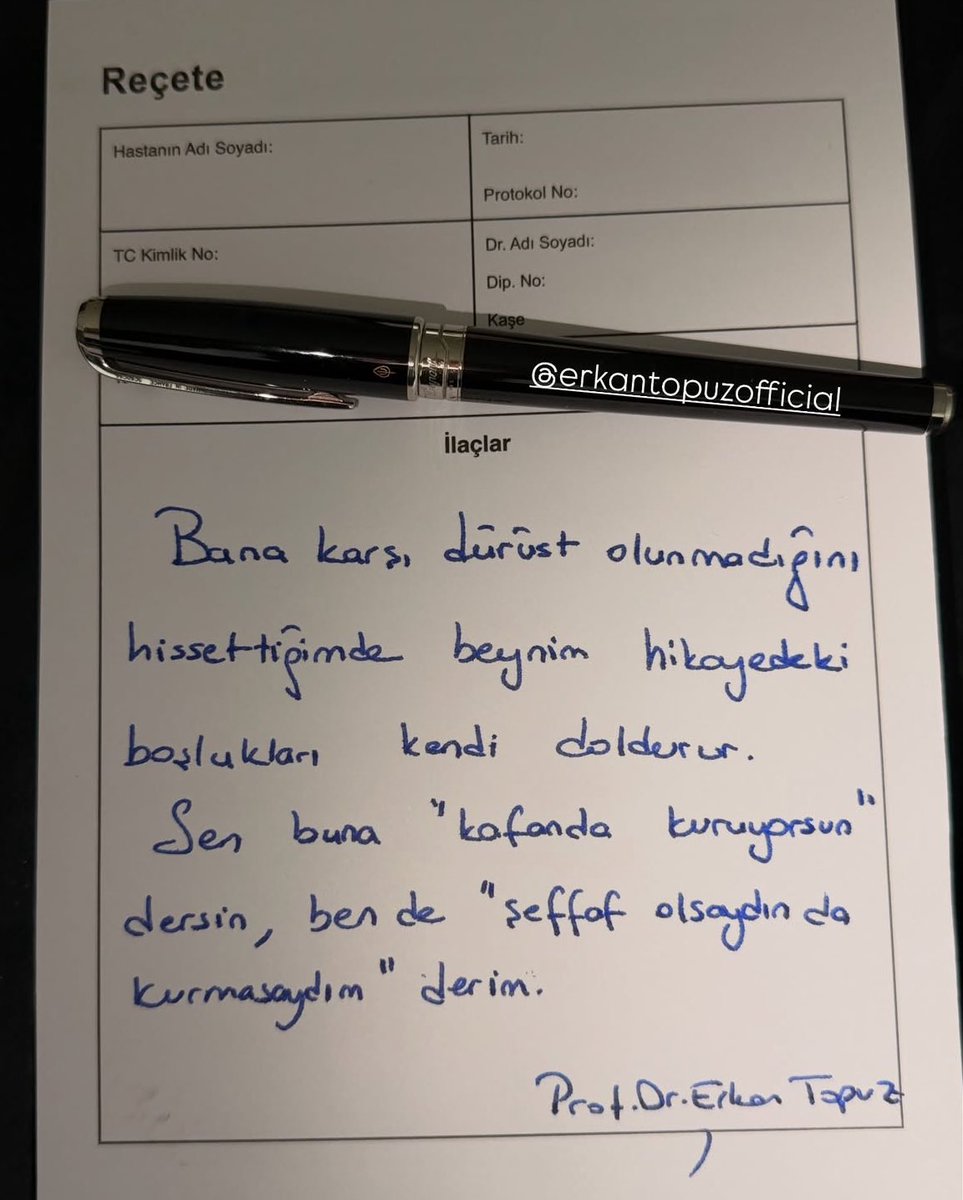 Reçete
Hastanın Adı Soyadı:
Tarih:
Protokol No:
TC Kimlik No:
Dr. Adı Soyadı:
Dip. No:
Kaşe
@erkantopuzofficial
İlaçlar
Bana karşı dürüst olunmadığını
hissettiğimde beynim hikayedeki
boşlukları kendi doldurur.
Sen buna "kafanda kuruyorsun"
dersin, ben de "şeffaf olsaydın da
kurmasaydım" derim.
Prof. Dr. Erkan Topuz